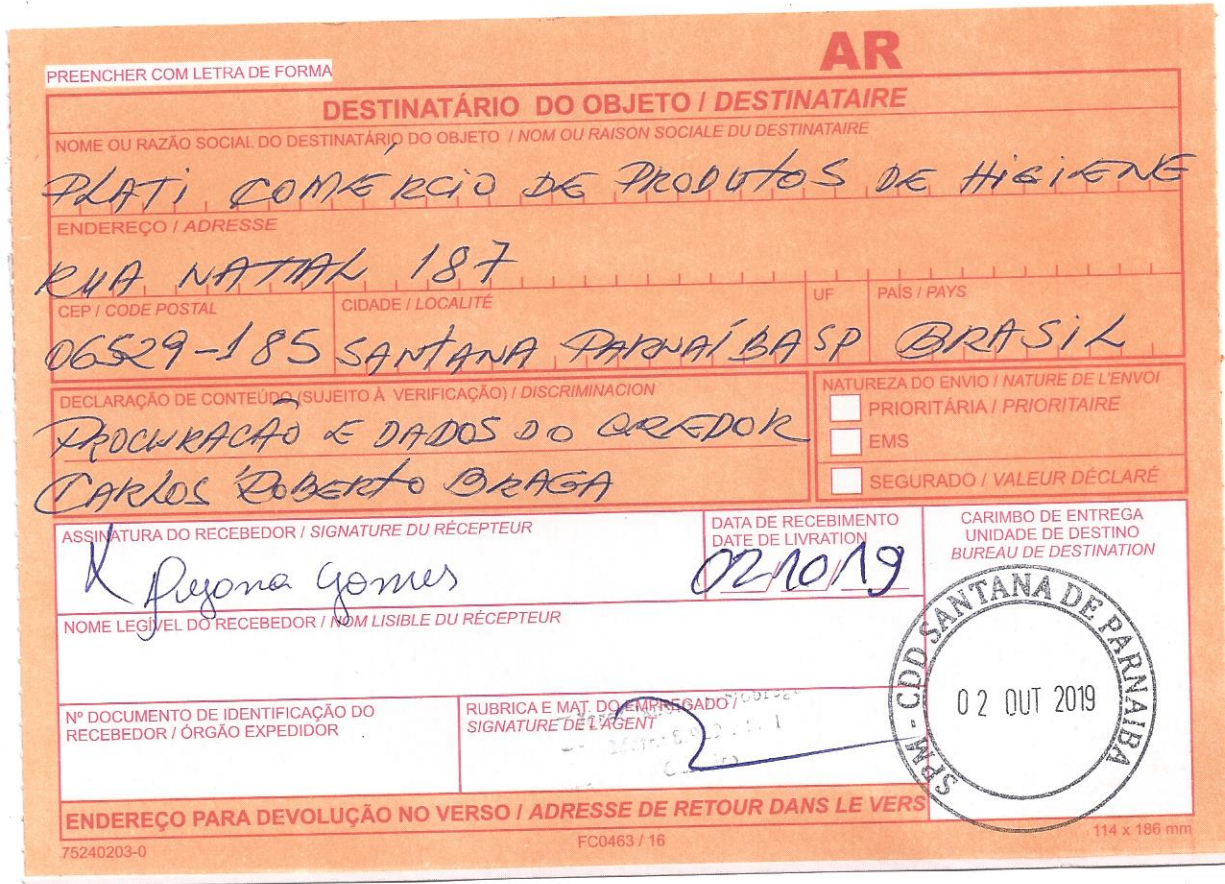 AR
PREENCHER COM LETRA DE FORMA
DESTINATÁRIO DO OBJETO / DESTINATAIRE
NOME OU RAZÃO SOCIAL DO DESTINATÁRIO DO OBJETO / NOM OU RAISON SOCIALE DU DESTINATAIRE
PLATI COMÉRCIO DE PRODUTOS DE HIGIENE
ENDEREÇO / ADRESSE
RUA NATAL 187
CEP / CODE POSTAL CIDADE / LOCALITÉ UF PAÍS / PAYS
06529-185 SANTANA PARNAÍBA SP BRASIL
DECLARAÇÃO DE CONTEÚDO (SUJEITO À VERIFICAÇÃO) / DISCRIMINACION
PROCURACÃO E DADOS DO CREDOR
CARLOS ROBERTO BRAGA
NATUREZA DO ENVIO / NATURE DE L'ENVOI
PRIORITÁRIA / PRIORITAIRE
EMS
SEGURADO / VALEUR DÉCLARÉ
ASSINATURA DO RECEBEDOR / SIGNATURE DU RÉCEPTEUR
X Gomes
DATA DE RECEBIMENTO
DATE DE LIVRATION
02/10/19
CARIMBO DE ENTREGA
UNIDADE DE DESTINO
BUREAU DE DESTINATION
SPM - CDD SANTANA DE PARNAIBA
02 OUT 2019
NOME LEGÍVEL DO RECEBEDOR / NOM LISIBLE DU RÉCEPTEUR
Nº DOCUMENTO DE IDENTIFICAÇÃO DO
RECEBEDOR / ÓRGÃO EXPEDIDOR
RUBRICA E MAT. DO EMPREGADO /
SIGNATURE DE L'AGENT
ENDEREÇO PARA DEVOLUÇÃO NO VERSO / ADRESSE DE RETOUR DANS LE VERS
75240203-0 FC0463 / 16 114 x 186 mm